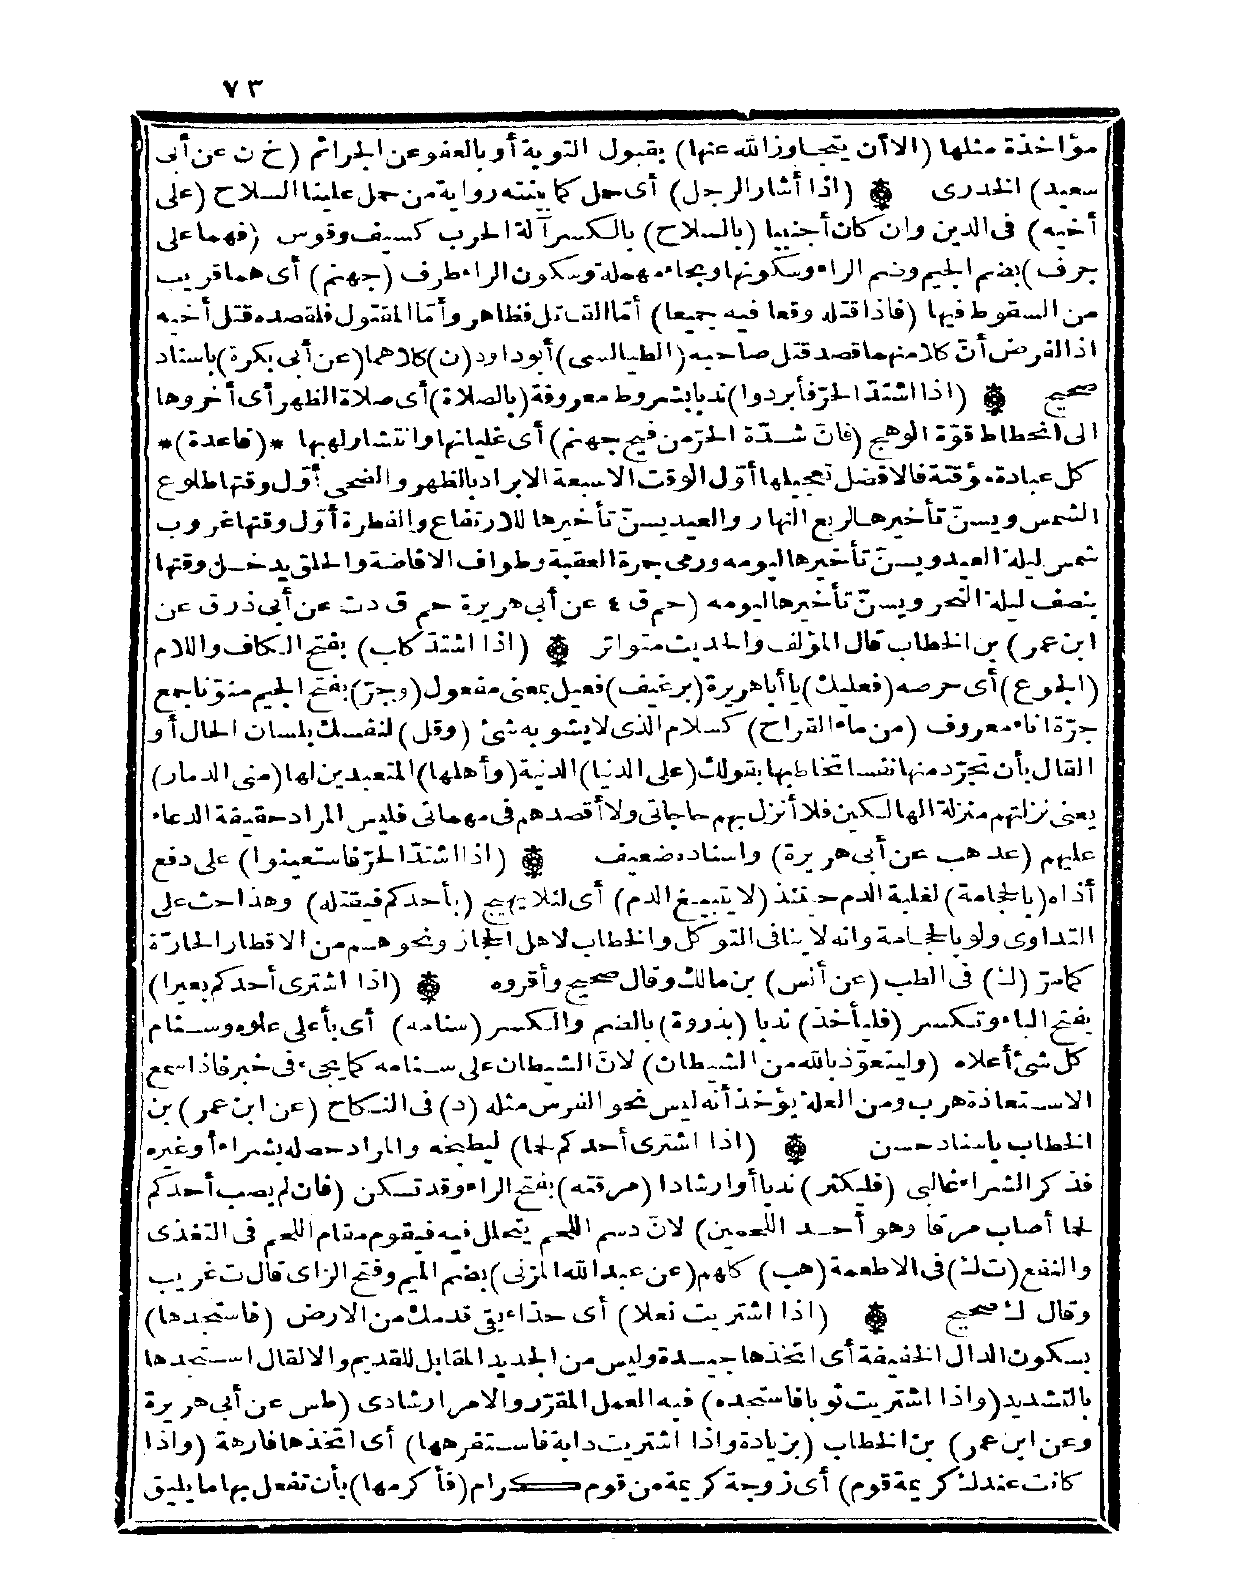 ٧٣
مؤاخذة مثلها (الا أن يتجاوز الله عنها) بقبول التوبة أو بالعفو عن الجرائم (خ ن عن أبى
سعيد) الخدرى (اذا أشار الرجل) أى حمل كما بينته رواية من حمل علينا السلاح (على
أخيه) فى الدين وان كان أجنبيا (بالسلاح) بالكسر آلة الحرب كسيف وقوس (فهما على
جرف) بضم الجيم وضم الراء وسكونها وبحاء مهملة وسكون الراء طرف (جهنم) أى هما قريب
من السقوط فيها (فاذا قتله وقعا فيه جميعا) أمّا القاتل فظاهر وأمّا المقتول فلقصده قتل أخيه
اذ الفرض أنّ كلا منهما قصد قتل صاحبه (الطيالسى) أبو داود (ن) كلاهما (عن أبى بكرة) باسناد
صحيح (اذا اشتدّ الحرّ فأبردوا) ندبا بشروط معروفة (بالصلاة) أى صلاة الظهر أى أخروها
الى انحطاط قوّة الوهج (فانّ شدّة الحرّ من فيح جهنم) أى غليانها وانتشار لهبها *(قاعدة)*
كل عبادة مؤقتة فالافضل تعجيلها أوّل الوقت الا سبعة الابراد بالظهر والضحى أوّل وقتها طلوع
الشمس ويسنّ تأخيرها لربع النهار والعيد يسنّ تأخيرها للارتفاع والفطرة أوّل وقتها غروب
شمس ليلة العيد ويسنّ تأخيرها ليومه ورمى جمرة العقبة وطواف الافاضة والحلق يدخل وقتها
بنصف ليلة النحر ويسنّ تأخيرها ليومه (حم ق ٤ عن أبى هريرة حم ق د ت عن أبى ذر ق عن
ابن عمر) بن الخطاب قال المؤلف والحديث متواتر (اذا اشتدّ كلب) بفتح الكاف واللام
(الجوع) أى حرصه (فعليك) يا أبا هريرة (برغيف) فعيل بمعنى مفعول (وجرّ) بفتح الجيم منوّنا جمع
جرّة اناء معروف (من ماء القراح) كسلام الذى لا يشوبه شئ (وقل) لنفسك بلسان الحال أو
القال بأن تجرّد منها نفسا تخاطبها بقولك (على الدنيا) الدنية (وأهلها) المتعبدين لها (منى الدمار)
يعنى نزلتهم منزلة الهالكين فلا أنزل بهم حاجاتى ولا أقصدهم فى مهماتى فليس المراد حقيقة الدعاء
عليهم (عد هب عن أبى هريرة) واسناده ضعيف (اذا اشتدّ الحرّ فاستعينوا) على دفع
أذاه (بالحجامة) لغلبة الدم حينئذ (لا يتبيغ الدم) أى لئلا يهيج (بأحدكم فيقتله) وهذا حث على
التداوى ولو بالحجامة وانه لا ينافى التوكل والخطاب لاهل الحجاز ونحوهم من الاقطار الحارّة
كما مرّ (ك) فى الطب (عن أنس) بن مالك وقال صحيح وأقروه (اذا اشترى أحدكم بعيرا)
بفتح الباء وتكسر (فليأخذ) ندبا (بذروة) بالضم والكسر (سنامه) أى بأعلى علوه وسنام
كل شئ أعلاه (وليتعوّذ بالله من الشيطان) لانّ الشيطان على سنامه كما يجىء فى خبر فاذا سمع
الاستعاذة هرب ومن العلة يؤخذ أنه ليس نحو الفرس مثله (د) فى النكاح (عن ابن عمر) بن
الخطاب باسناد حسن (اذا اشترى أحدكم لحما) ليطبخه والمراد حصله بشراء أو غيره
فذكر الشراء غالبى (فليكثر) ندبا أو ارشادا (مرقته) بفتح الراء وقد تسكن (فان لم يصب أحدكم
لحما أصاب مرقا وهو أحد اللحمين) لانّ دسم اللحم يتحلل فيه فيقوم مقام اللحم فى التغذى
والنفع (ت ك) فى الاطعمة (هب) كلهم (عن عبد الله المزنى) بضم الميم وفتح الزاى قال ت غريب
وقال ك صحيح (اذا اشتريت نعلا) أى حذاء يقى قدمك من الارض (فاستجدها)
بسكون الدال الخفيفة أى اتخذها جيدة وليس من الجديد المقابل للقديم والا لقال استجدها
بالتشديد (واذا اشتريت ثوبا فاستجده) فيه العمل المقرّر والامر ارشادى (طس عن أبى هريرة
وعن ابن عمر) بن الخطاب (بزيادة واذا اشتريت دابة فاستفرهها) أى اتخذها فارهة (واذا
كانت عندك كريمة قوم) أى زوجة كريمة من قوم كرام (فأكرمها) بأن تفعل بها ما يليق